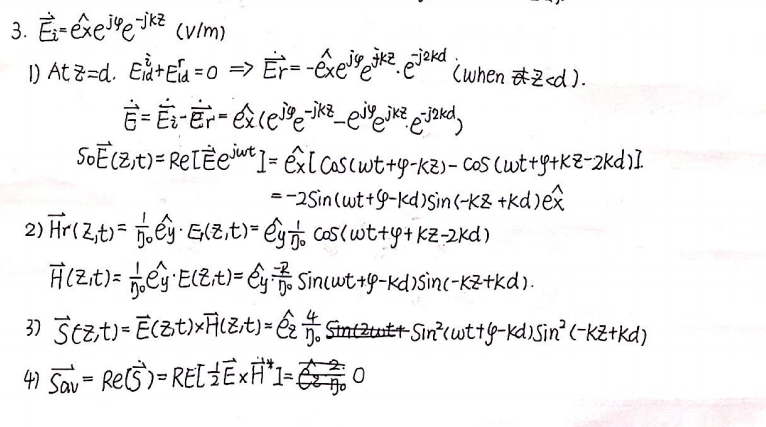 3. Ėi=êxe^{jφ}e^{-jkz} (v/m)
1) At z=d. E^i_{id}+E^r_{id}=0 ⇒ Ėr=-êxe^{jφ}e^{jkz}·e^{-j2kd} (when z<d).
Ė=Ėi-Ėr=êx(e^{jφ}e^{-jkz}-e^{jφ}e^{jkz}·e^{-j2kd})
So E⃗(z,t)=Re[Ėe^{jwt}]=êx[cos(wt+φ-kz)-cos(wt+φ+kz-2kd)].
=-2Sin(wt+φ-kd)Sin(-kz+kd)êx
2) H⃗r(z,t)=1/η₀ êy·Er(z,t)=êy 1/η₀ cos(wt+φ+kz-2kd)
H⃗(z,t)=1/η₀ êy·E(z,t)=êy -2/η₀ Sin(wt+φ-kd)Sin(-kz+kd).
3) S⃗(z,t)=E⃗(z,t)×H⃗(z,t)=êz 4/η₀ Sin²(wt+φ-kd)Sin²(-kz+kd)
4) S⃗av=Re(Ṡ)=RE[½E⃗×H⃗*]=0